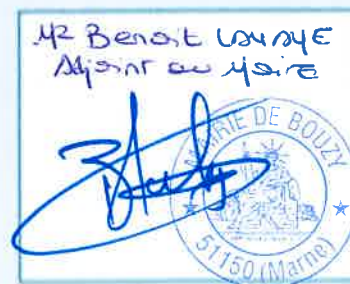 Mr Benoit LAHAYE
Adjoint au Maire
MAIRIE DE BOUZY
51150 (Marne)